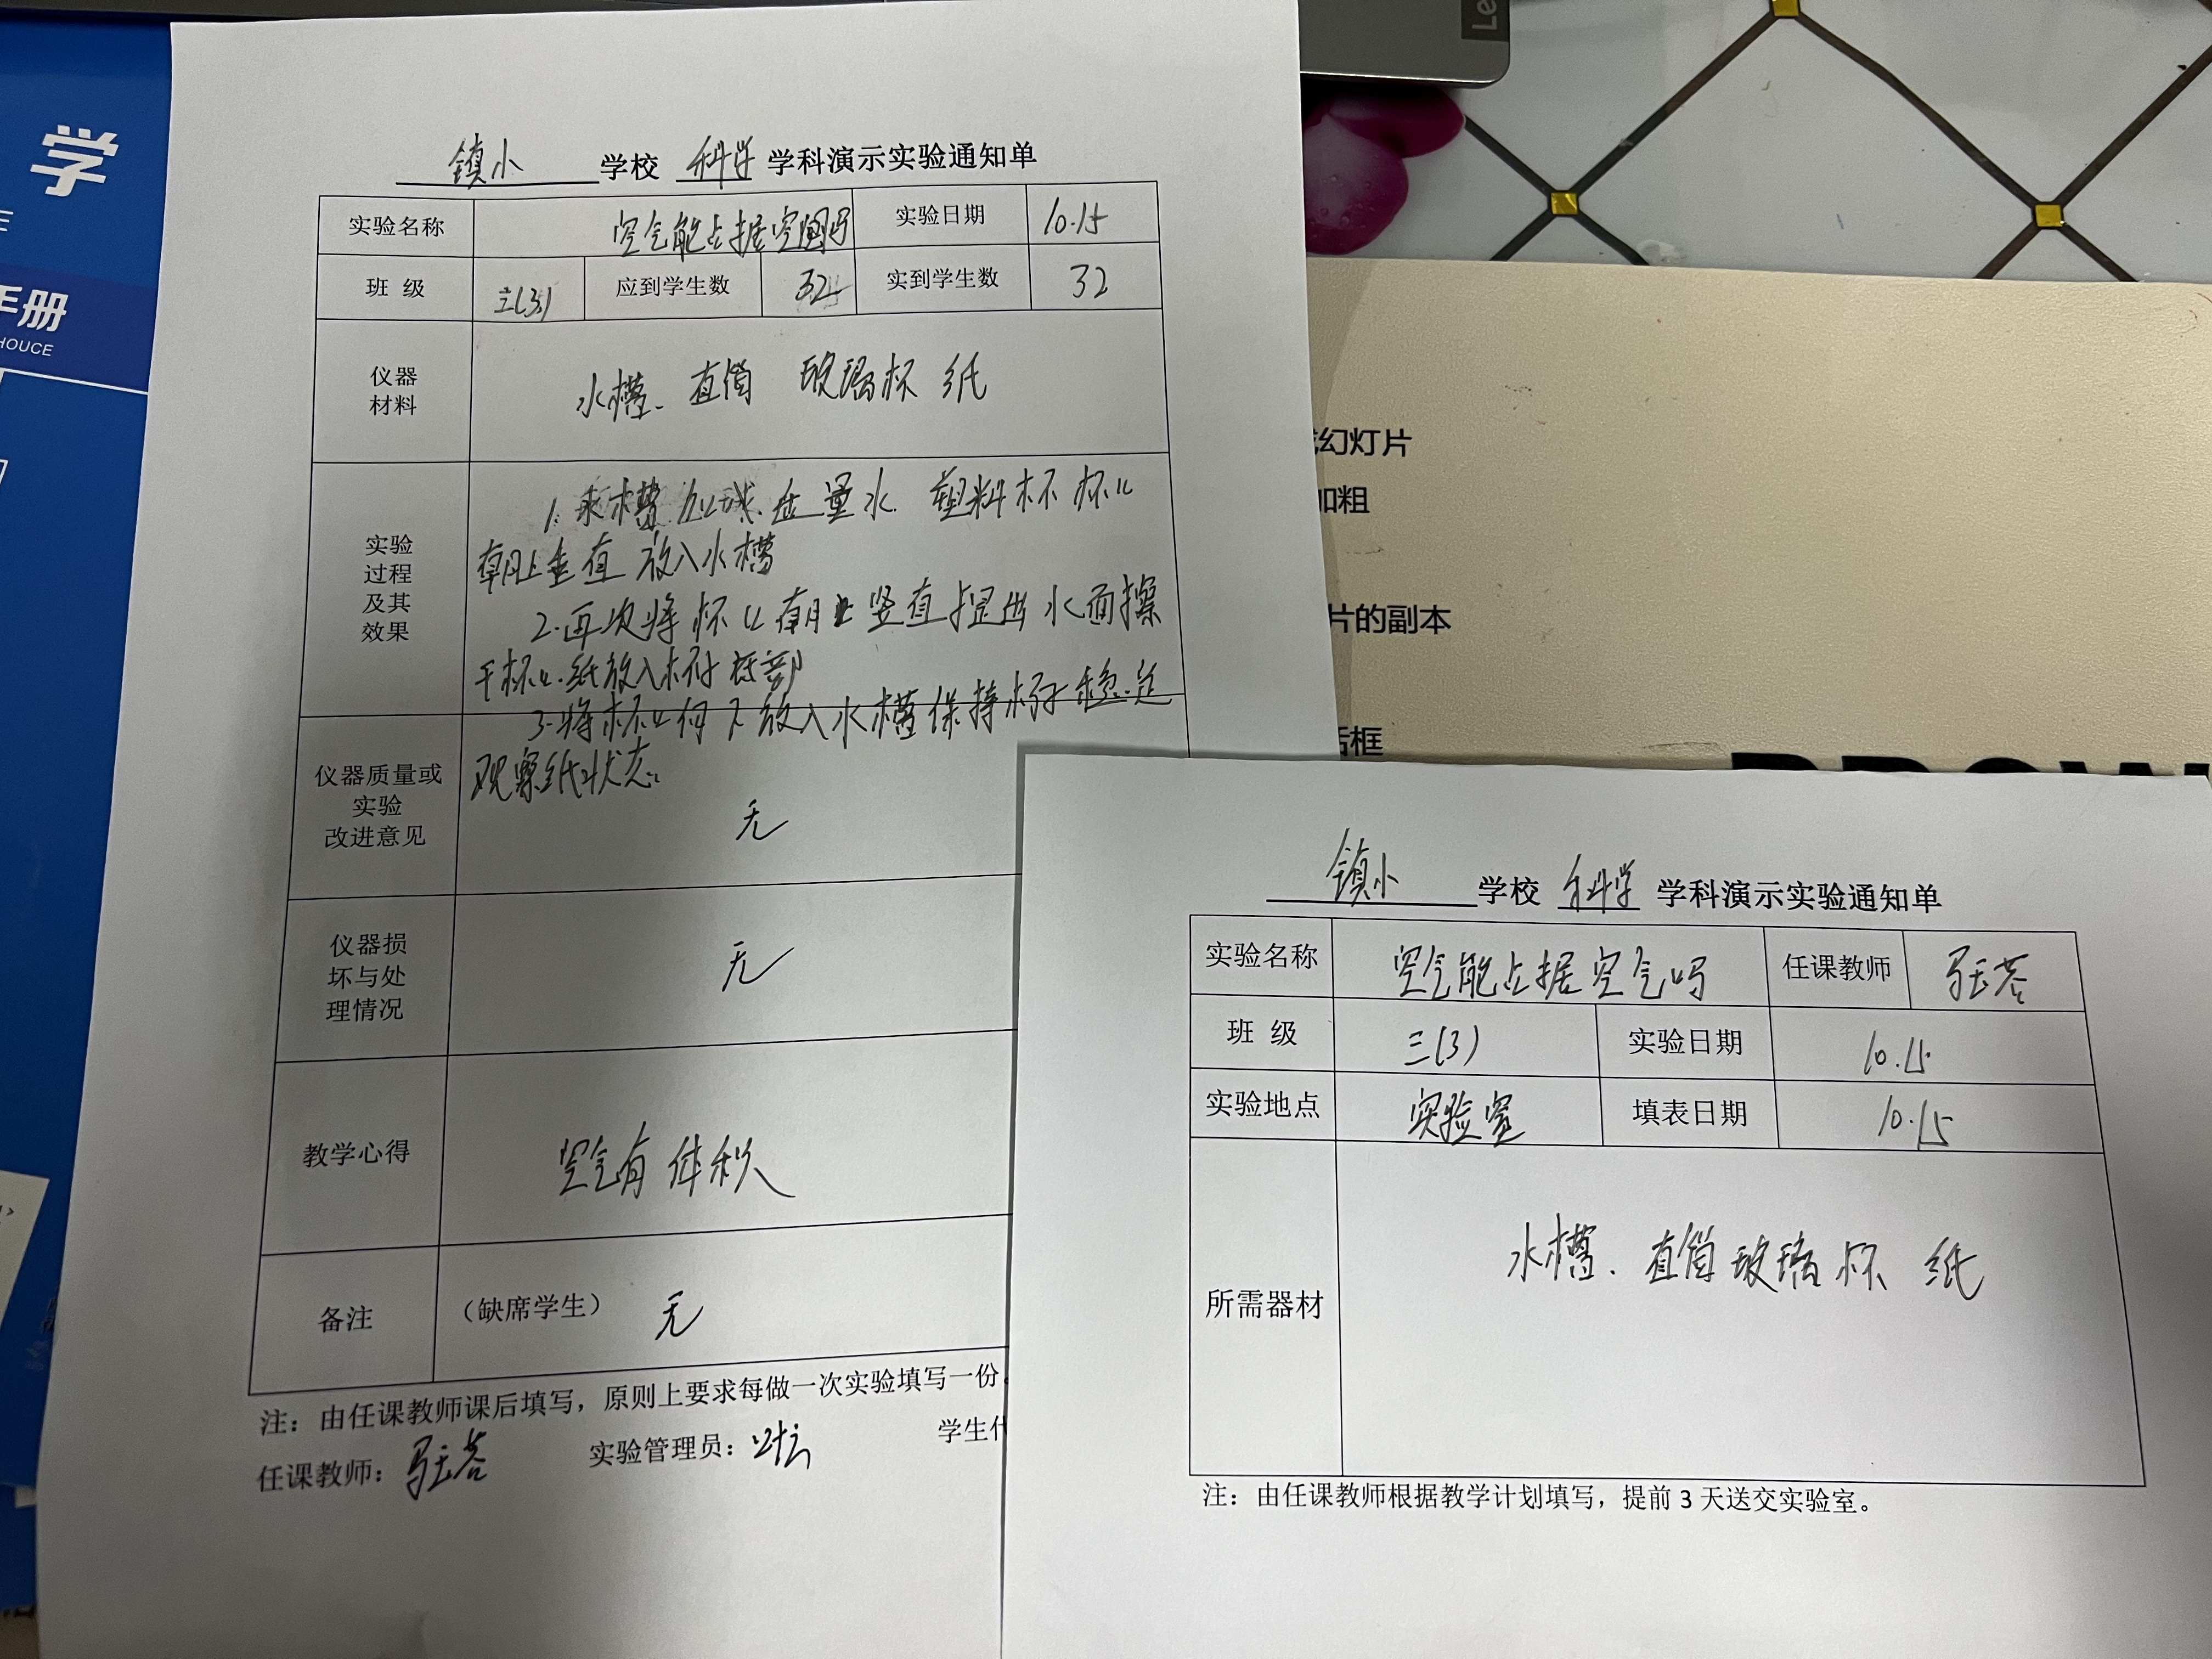 学
手册
HOUCE
Le
幻灯片
加粗
片的副本
话框
镇小 学校 科学 学科演示实验通知单
实验名称 空气能占据空间吗 实验日期 10.15
班 级 三(3) 应到学生数 32 实到学生数 32
仪器
材料
水槽、直筒 玻璃杯 纸
实验
过程
及其
效果
1. 水槽 量水 塑料杯 杯口
朝上垂直 放入水槽
2.再次将杯口朝上竖直提出水面擦
干杯口.纸放入杯子底部
3.将杯口向下放入水槽保持杯子稳定
观察纸状态
仪器质量或
实验
改进意见
无
仪器损
坏与处
理情况
无
教学心得 空气有体积
备注 （缺席学生） 无
注：由任课教师课后填写，原则上要求每做一次实验填写一份。
任课教师： 实验管理员： 学生代
镇小 学校 科学 学科演示实验通知单
实验名称 空气能占据空气吗 任课教师
班 级 三(3) 实验日期 10.15
实验地点 实验室 填表日期 10.15
所需器材 水槽、直筒玻璃杯 纸
注：由任课教师根据教学计划填写，提前 3 天送交实验室。